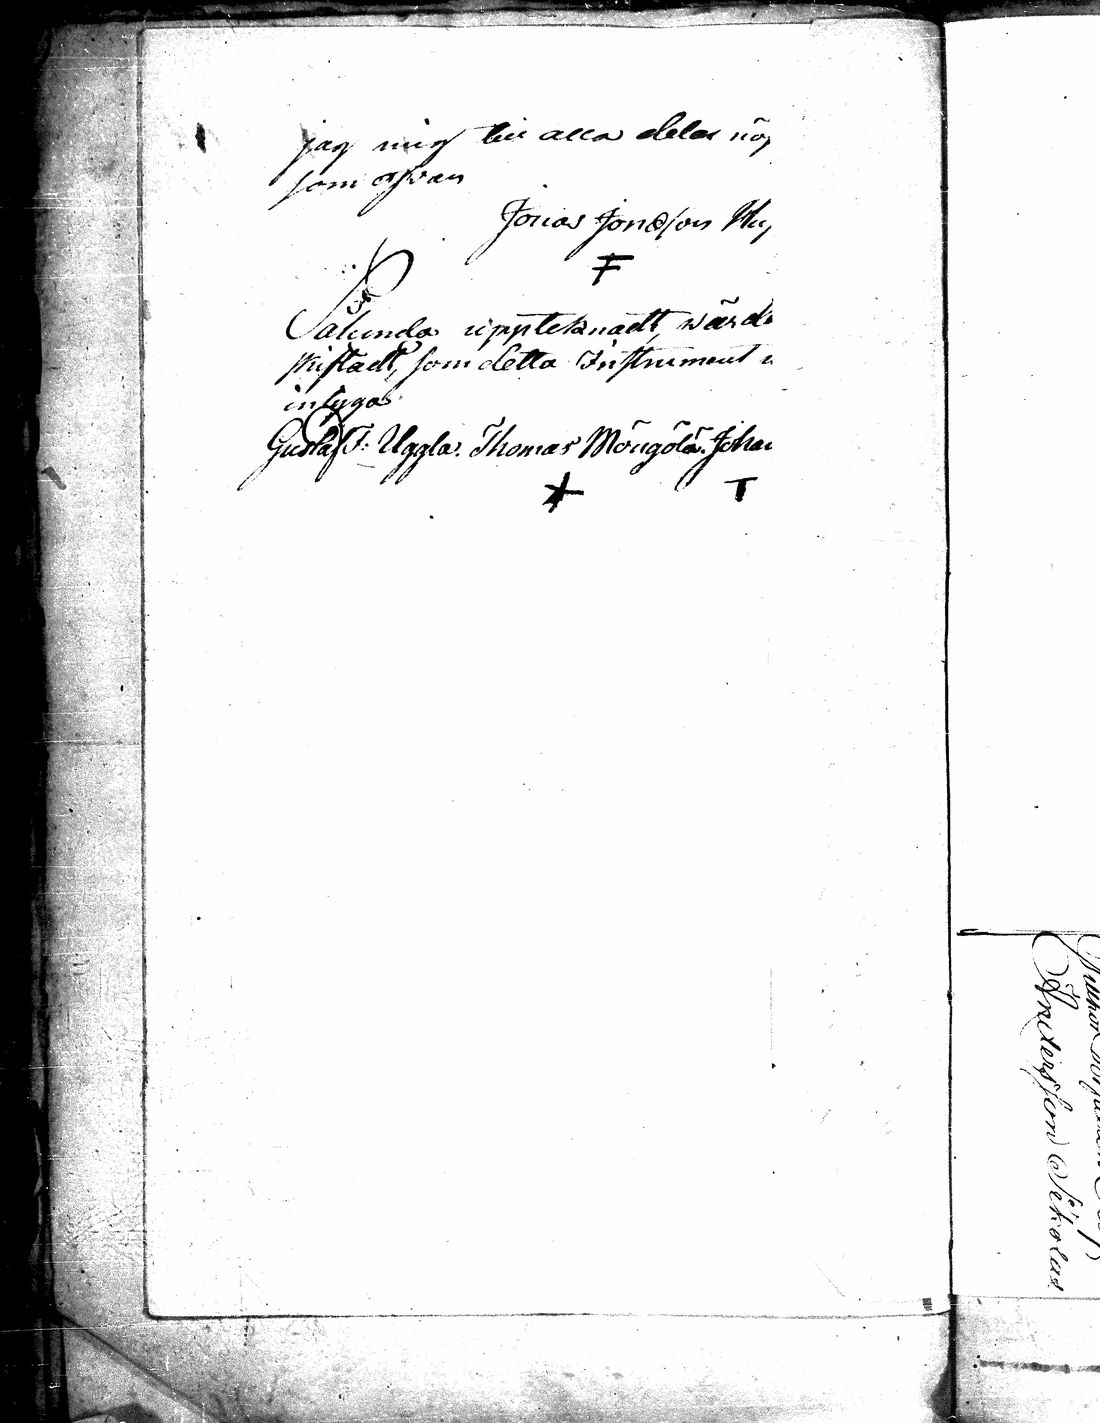 jag mig till alla delar nöj
som ofvan
Jonas Jonsson
F
Sålunda upptecknadt, wärde
skiftadt, som detta Instrument
intyga
Gustaf F: Uggla. Thomas Johan
T
Andersson Sikolas